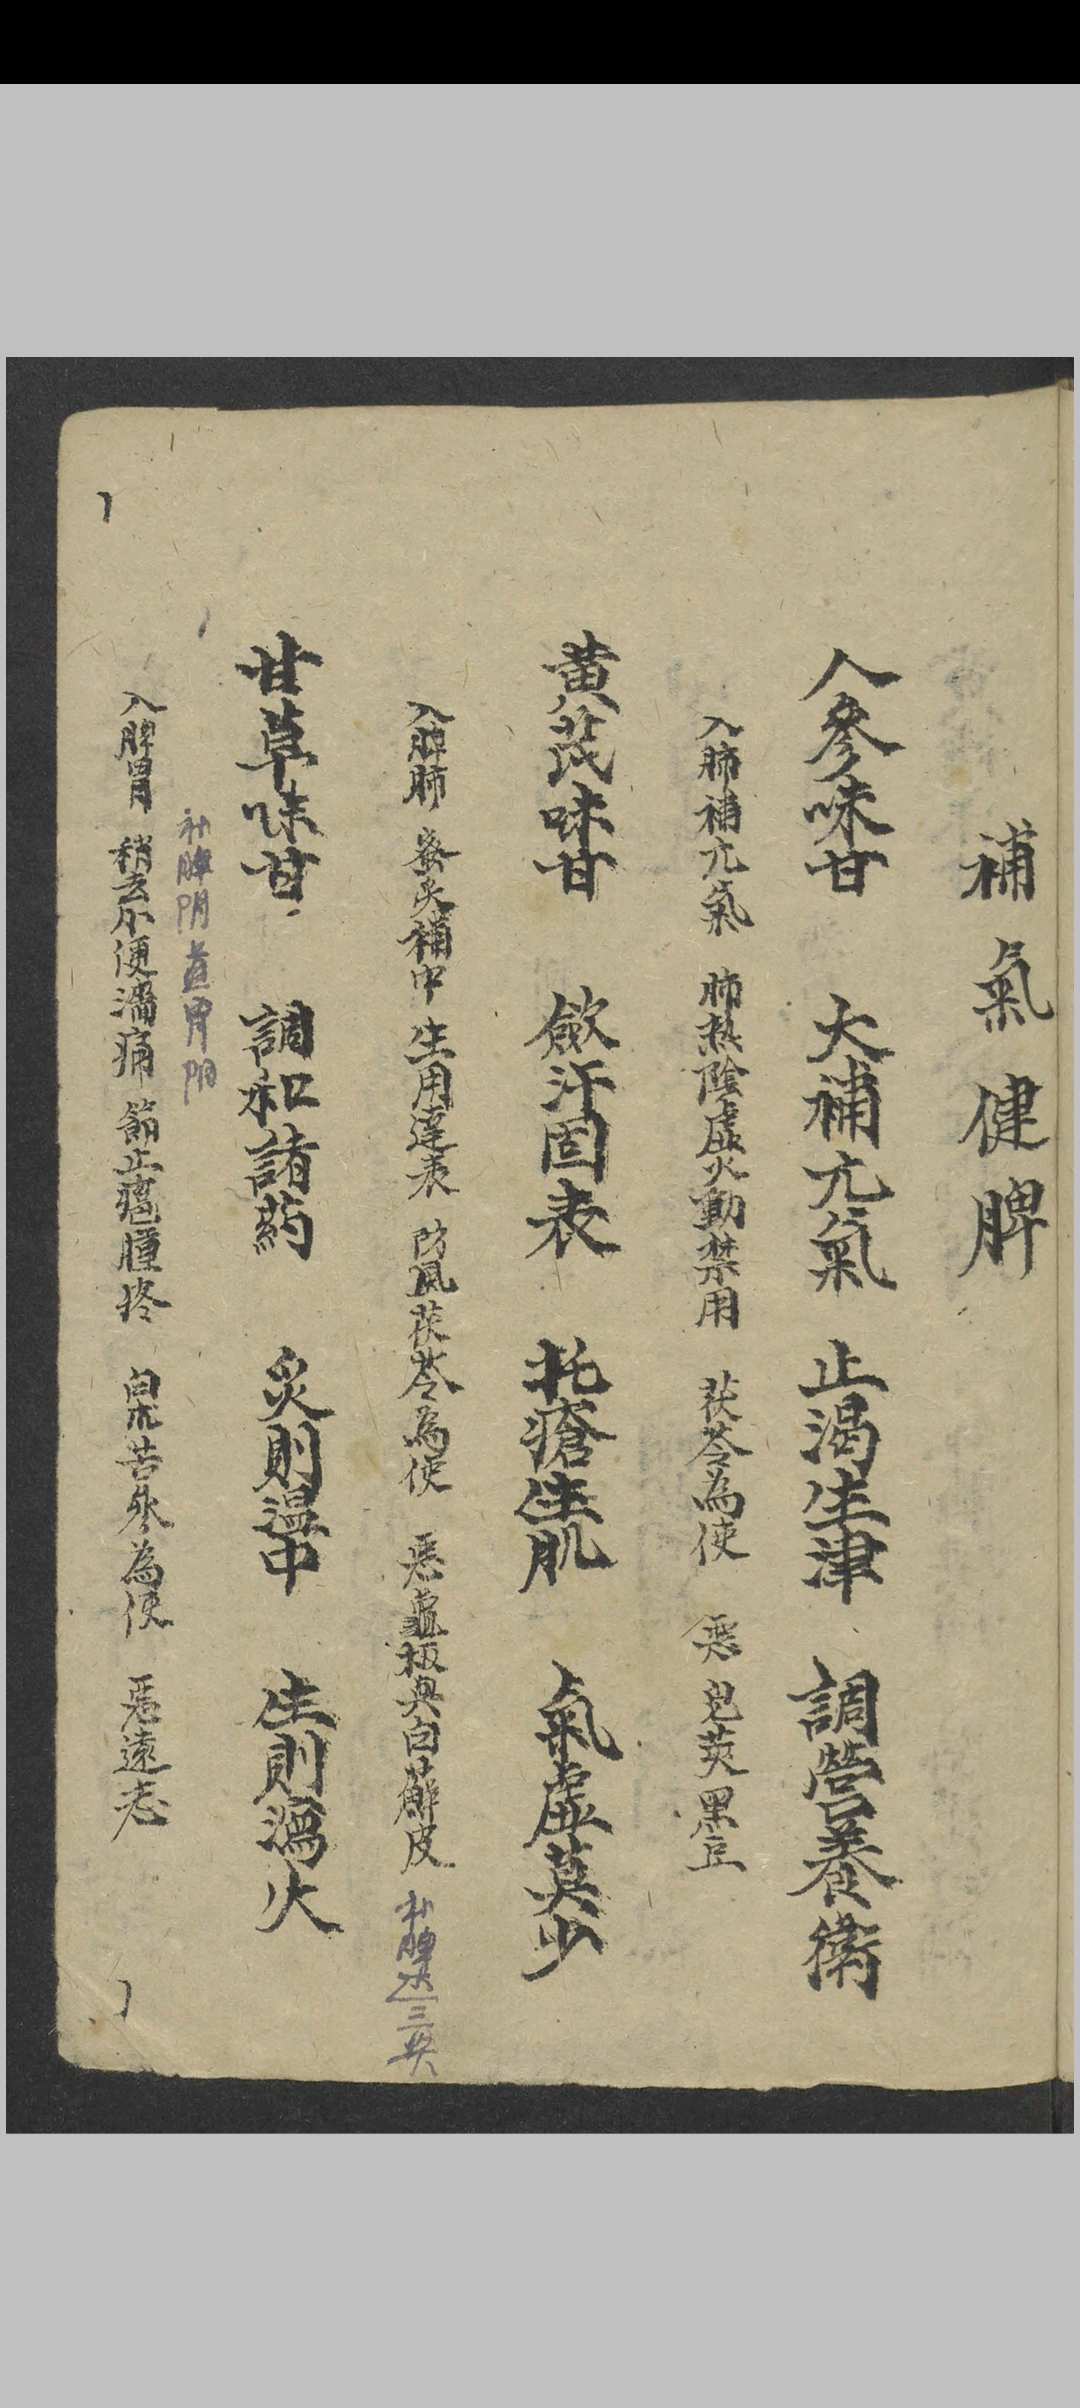 補氣健脾
人參味甘 大補元氣 止渴生津 調營養衛
入肺補元氣 肺热陰虛火動禁用 茯苓為使 惡皂莢黑豆
黄茂味甘 斂汗固表 托瘡生肌 氣虛莫少
入脾肺 蜜炙補中 生用達表 防風茯苓為使 惡龜板與白蘚皮 补脾
甘草味甘 調和諸药 炙則温中 生則瀉火
补脾阴 胃阴
入脾胃 稍去小便濇痛 節止瘡腫疼 苦參為使 惡遠志